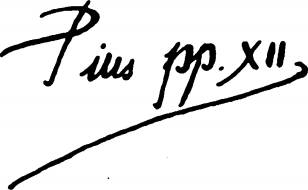 Pius pp. XII.